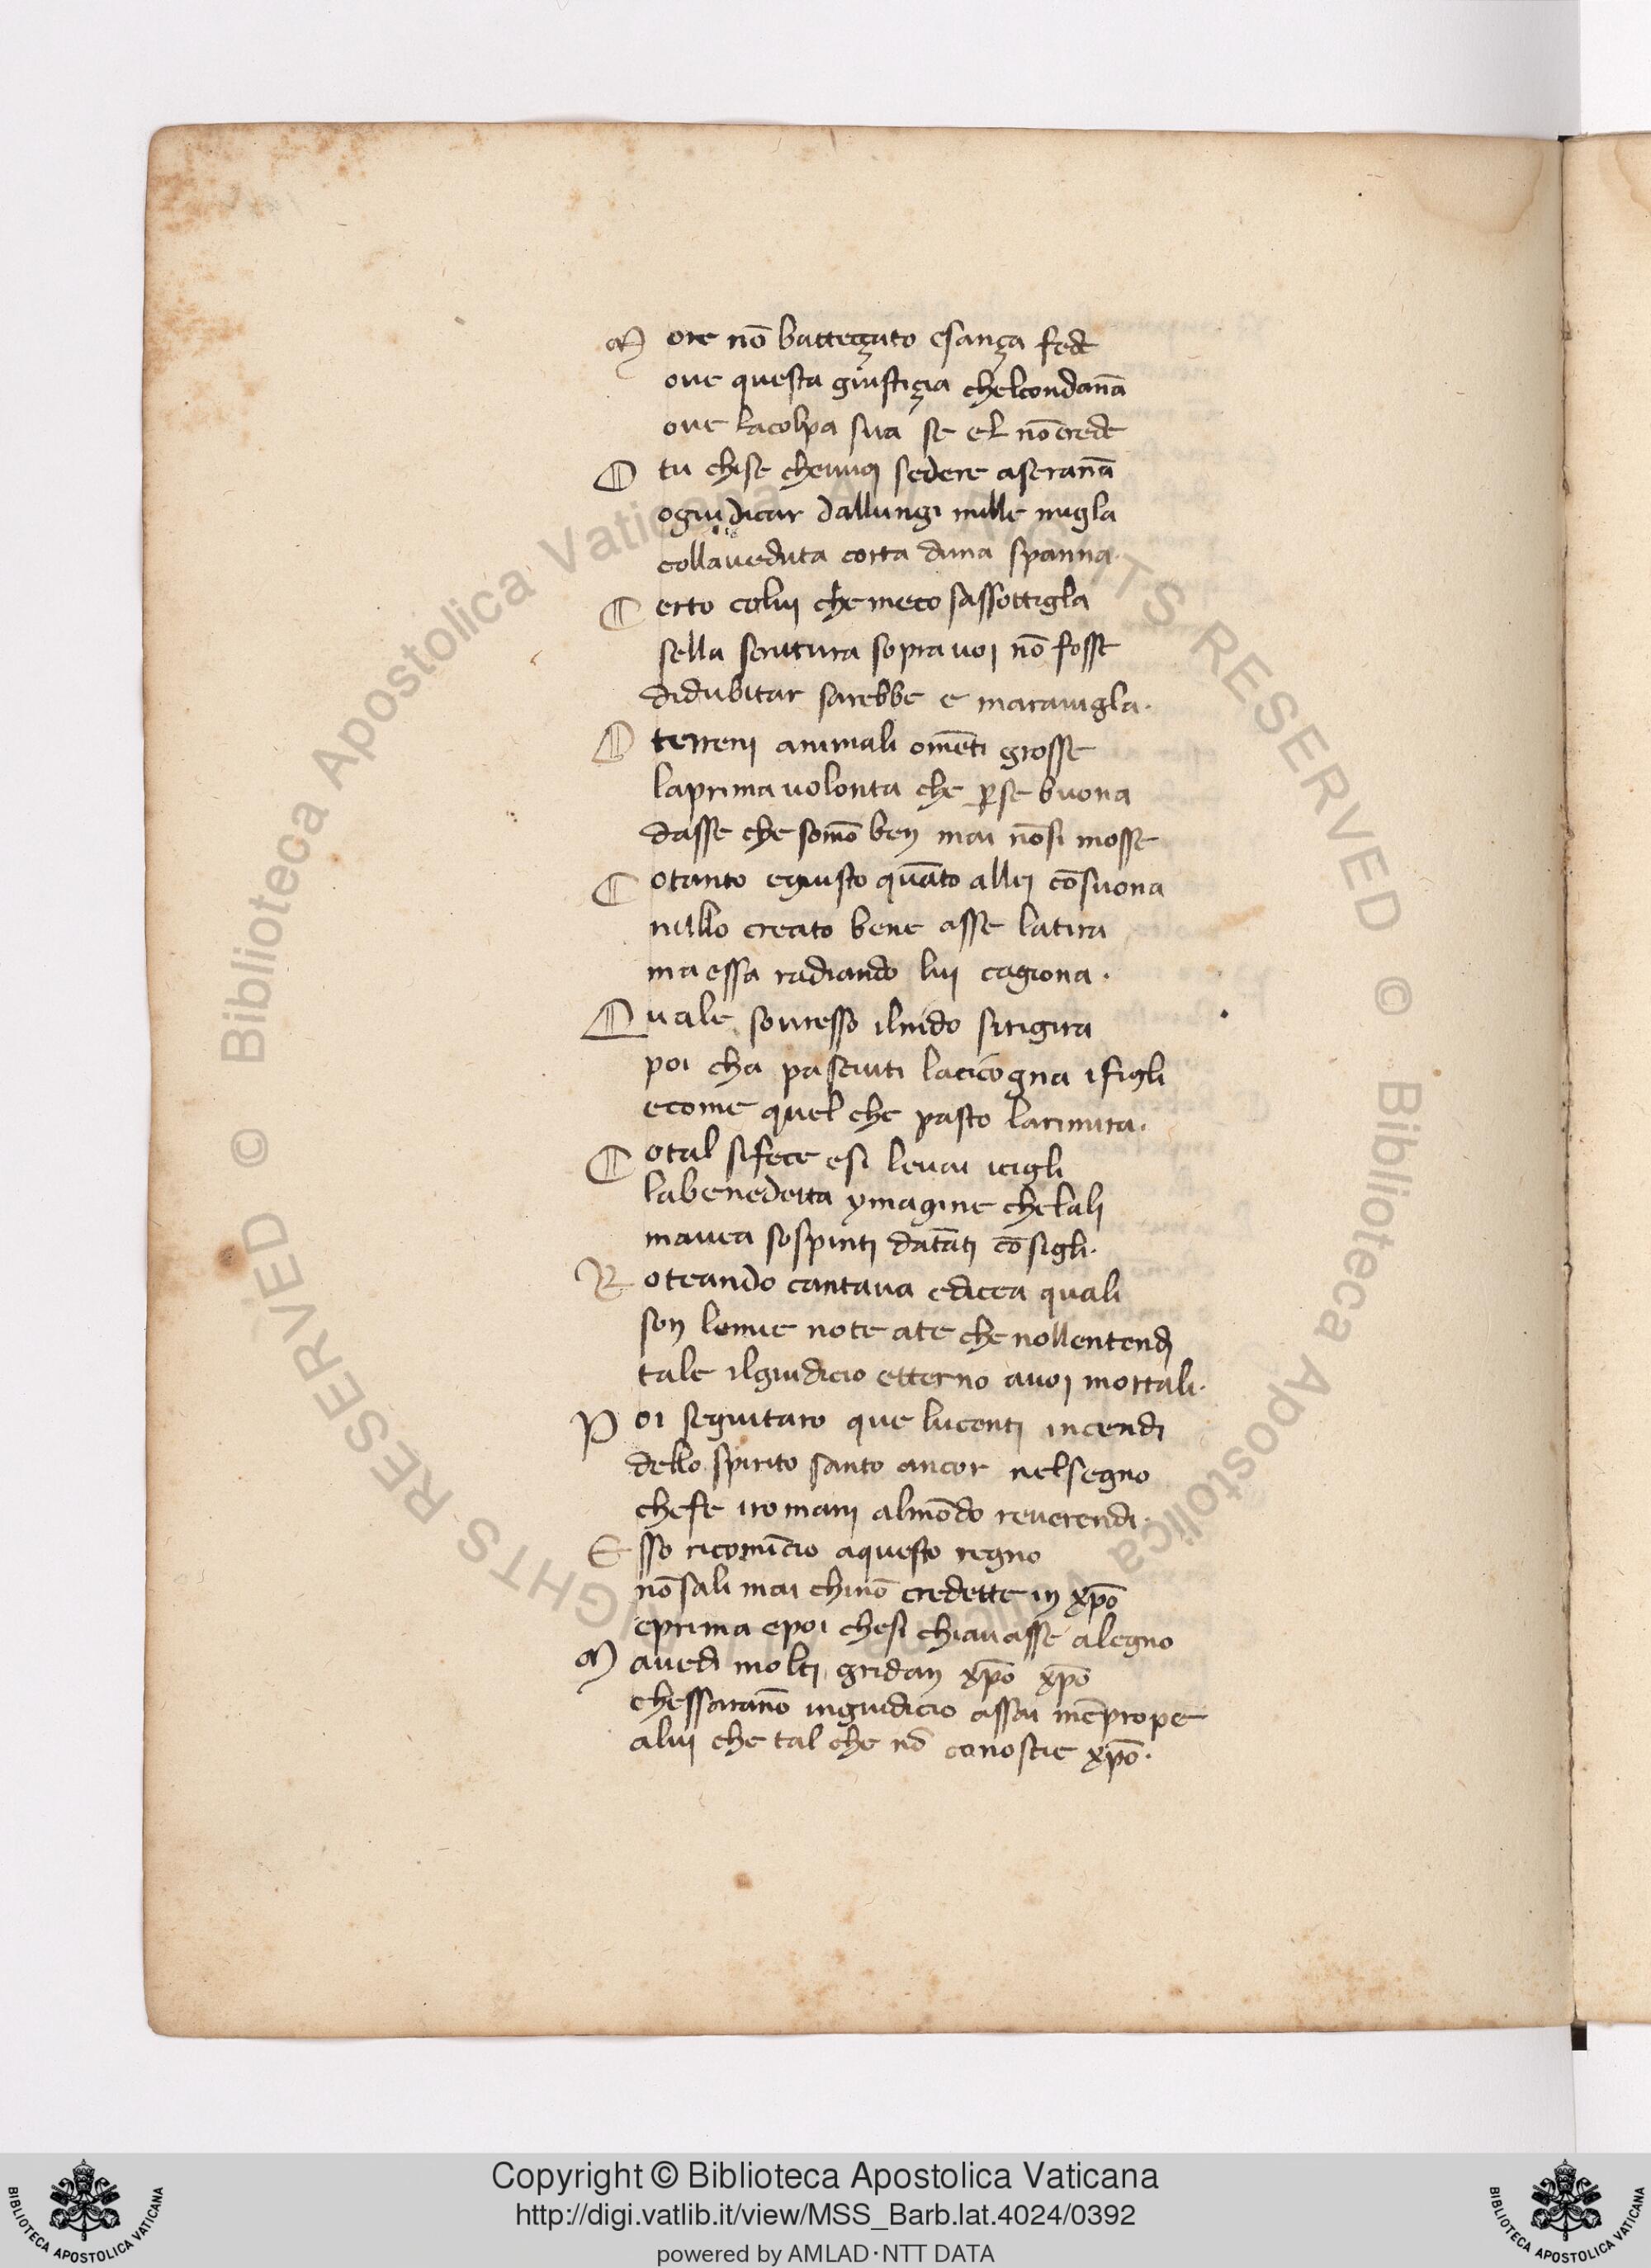 More nō batteçato esança fede
oue questa giustiçia chelcondanā
oue lacolpa sua se el nōcrede
O tu chise cheuuoi sedere aseranā
ogiudicar dallungi mille migla
collaueduta corta duna spanna.
Certo colui chemeco sassottigla
sella scrittura sopra uoi nō fosse
didubitar sarebbe e marauigla.
O terreni animali omēti grosse
laprima uolonta che ꝑse buona
dasse che somō ben mai nōsi mosse
Cotanto egiusto quāto allei cōsuona
nullo creato bene asse latira
ma essa radiando lui cagiona.
Quale sovresso ilnido sirigira
poi cha pasciuti lacicogna ifigli
ecome quel che pasto larimira.
Cotal sifece esi leuai icigli
labenedetta ymagine chelali
mauea sospinti datāti cōsigli.
Roteando cantaua edicea quali
son lemie note ate che nollentendi
tale ilgiudicio etterno auoi mortali.
Poi seguitaro que lucenti incendi
dello spirito santo ancor nelsegno
chefe iromani almōdo reuerendi.
Esso ricomīcio aquesto regno
nōsali mai chinō credette in xp̄o
eprima epoi chesi chiauasse alegno
Mauedi molti gridan xp̄o xp̄o
chessarāno ingiudicio assai mēprope
alui che tal che nō conoscie xp̄o.
Copyright © Biblioteca Apostolica Vaticana
http://digi.vatlib.it/view/MSS_Barb.lat.4024/0392
powered by AMLAD·NTT DATA
BIBLIOTECA APOSTOLICA VATICANA
BIBLIOTECA APOSTOLICA VATICANA